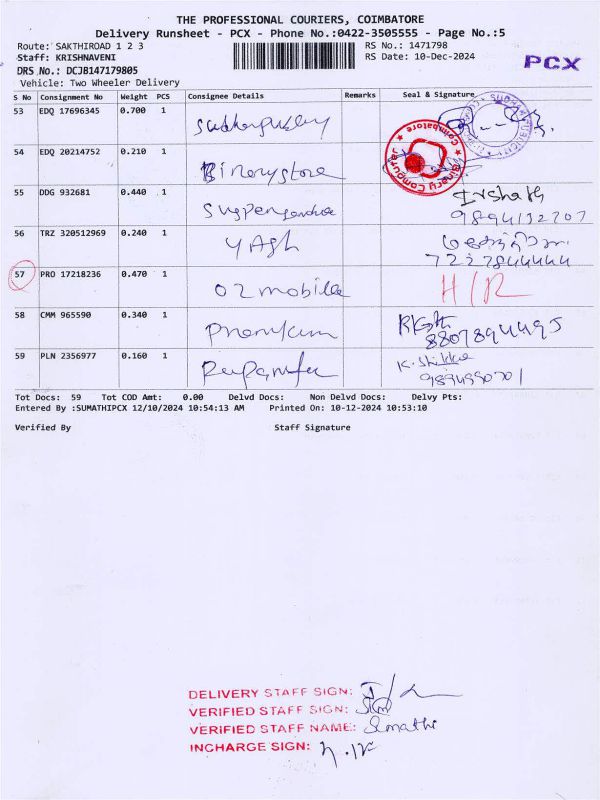 THE PROFESSIONAL COURIERS, COIMBATORE
Delivery Runsheet - PCX - Phone No.:0422-3505555 - Page No.:5
Route: SAKTHIROAD 1 2 3
RS No.: 1471798
Staff: KRISHNAVENI
RS Date: 10-Dec-2024
PCX
DRS No.: DCJB147179805
Vehicle: Two Wheeler Delivery
S No Consignment No Weight PCS Consignee Details Remarks Seal & Signature
53 EDQ 17696345 0.700 1
54 EDQ 20214752 0.210 1 Binerystore
Coimbatore
55 DDG 932681 0.440 1 Irshath
9894132707
56 TRZ 320512969 0.240 1 YAsh
7227844444
57 PRO 17218236 0.470 1 O2mobile H/R
58 CMM 965590 0.340 1
8807894495
59 PLN 2356977 0.160 1
Tot Docs: 59 Tot COD Amt: 0.00 Delvd Docs: Non Delvd Docs: Delvy Pts:
Entered By :SUMATHIPCX 12/10/2024 10:54:13 AM Printed On: 10-12-2024 10:53:10
Verified By Staff Signature
DELIVERY STAFF SIGN:
VERIFIED STAFF SIGN:
VERIFIED STAFF NAME: Sumathi
INCHARGE SIGN: